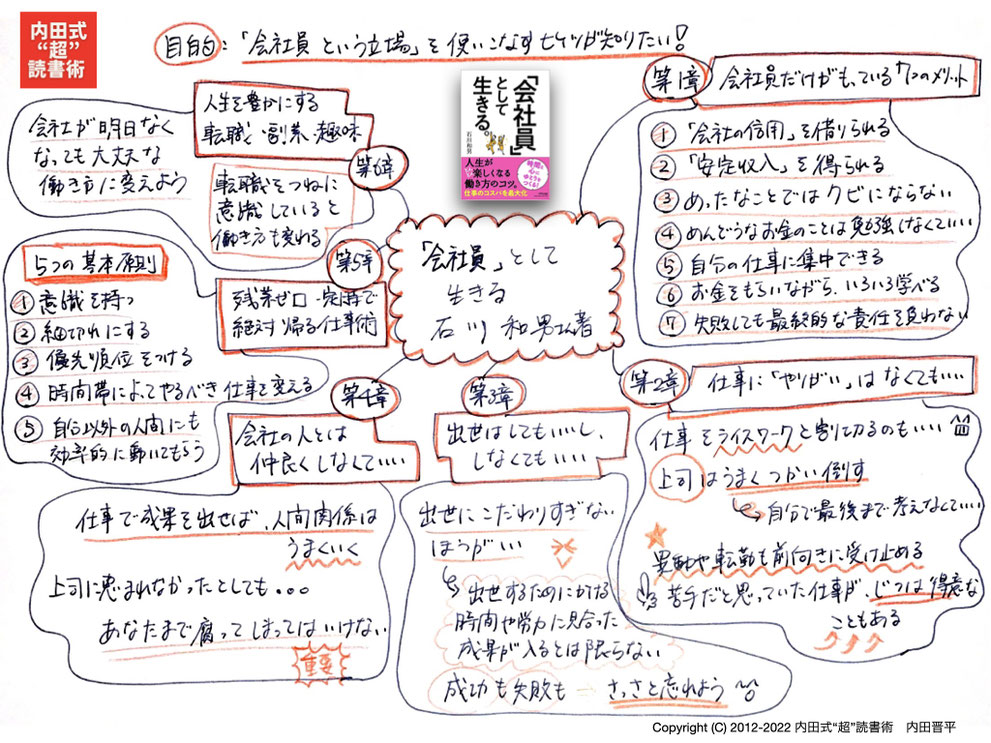 内田式
“超”
読書術
目的:「会社員という立場」を使いこなすヒケツが知りたい!
「会社員」
として
生きる。
石川和男
人生が
楽しくなる
働き方のコツ。
時間と
心に
ゆとりを
つくる!
仕事のコスパを最大化
「会社員」として
生きる
石川 和男さん著
第1章
会社員だけがもっている7つのメリット
① 「会社の信用」を借りられる
② 「安定収入」を得られる
③ めったなことではクビにならない
④ めんどうなお金のことは勉強しなくていい
⑤ 自分の仕事に集中できる
⑥ お金をもらいながら、いろいろ学べる
⑦ 失敗しても最終的な責任を負わない
第2章
仕事に「やりがい」はなくてもいい
仕事をライスワークと割り切るのもいい
上司はうまくつかい倒す
自分で最後まで考えなくていい
異動や転勤も前向きに受け止める
苦手だと思っていた仕事が、じつは得意な
こともある
第3章
出世はしてもいいし、
しなくてもいい
出世にこだわりすぎない
ほうがいい
出世するためにかける
時間や労力に見合った
成果が入るとは限らない
成功も失敗も→さっさと忘れよう
第4章
会社の人とは
仲良くしなくていい
仕事で成果を出せば、人間関係は
うまくいく
上司に恵まれなかったとしても。。。
あなたまで腐ってしまってはいけない
重要
第5章
残業ゼロ・定時で
絶対帰る仕事術
5つの基本原則
① 意識を持つ
② 細切れにする
③ 優先順位をつける
④ 時間帯によってやるべき仕事を変える
⑤ 自分以外の人間にも
効率的に動いてもらう
第6章
人生を豊かにする
転職・副業・趣味
転職をつねに
意識していると
働き方も変わる
会社が明日なく
なっても大丈夫な
働き方に変えよう
Copyright (C) 2012-2022 内田式“超”読書術 内田晋平